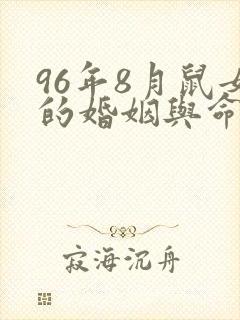 96年8月鼠女
的婚姻與命
寂海沉舟